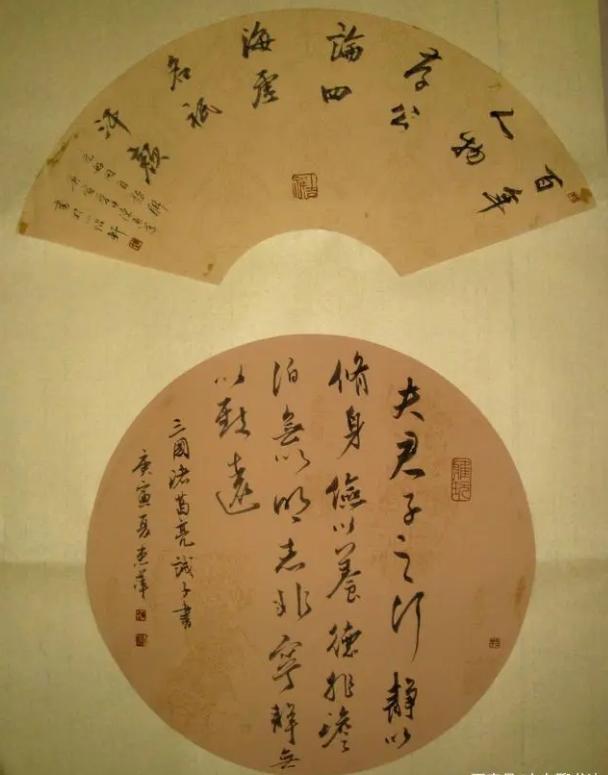 百年
人物
存公
論四
海虛
名祇
汗顏
夫君子之行靜以
脩身儉以養德非澹
泊無以明志非寧靜無
以致遠
三國諸葛亮誡子書
庚寅夏